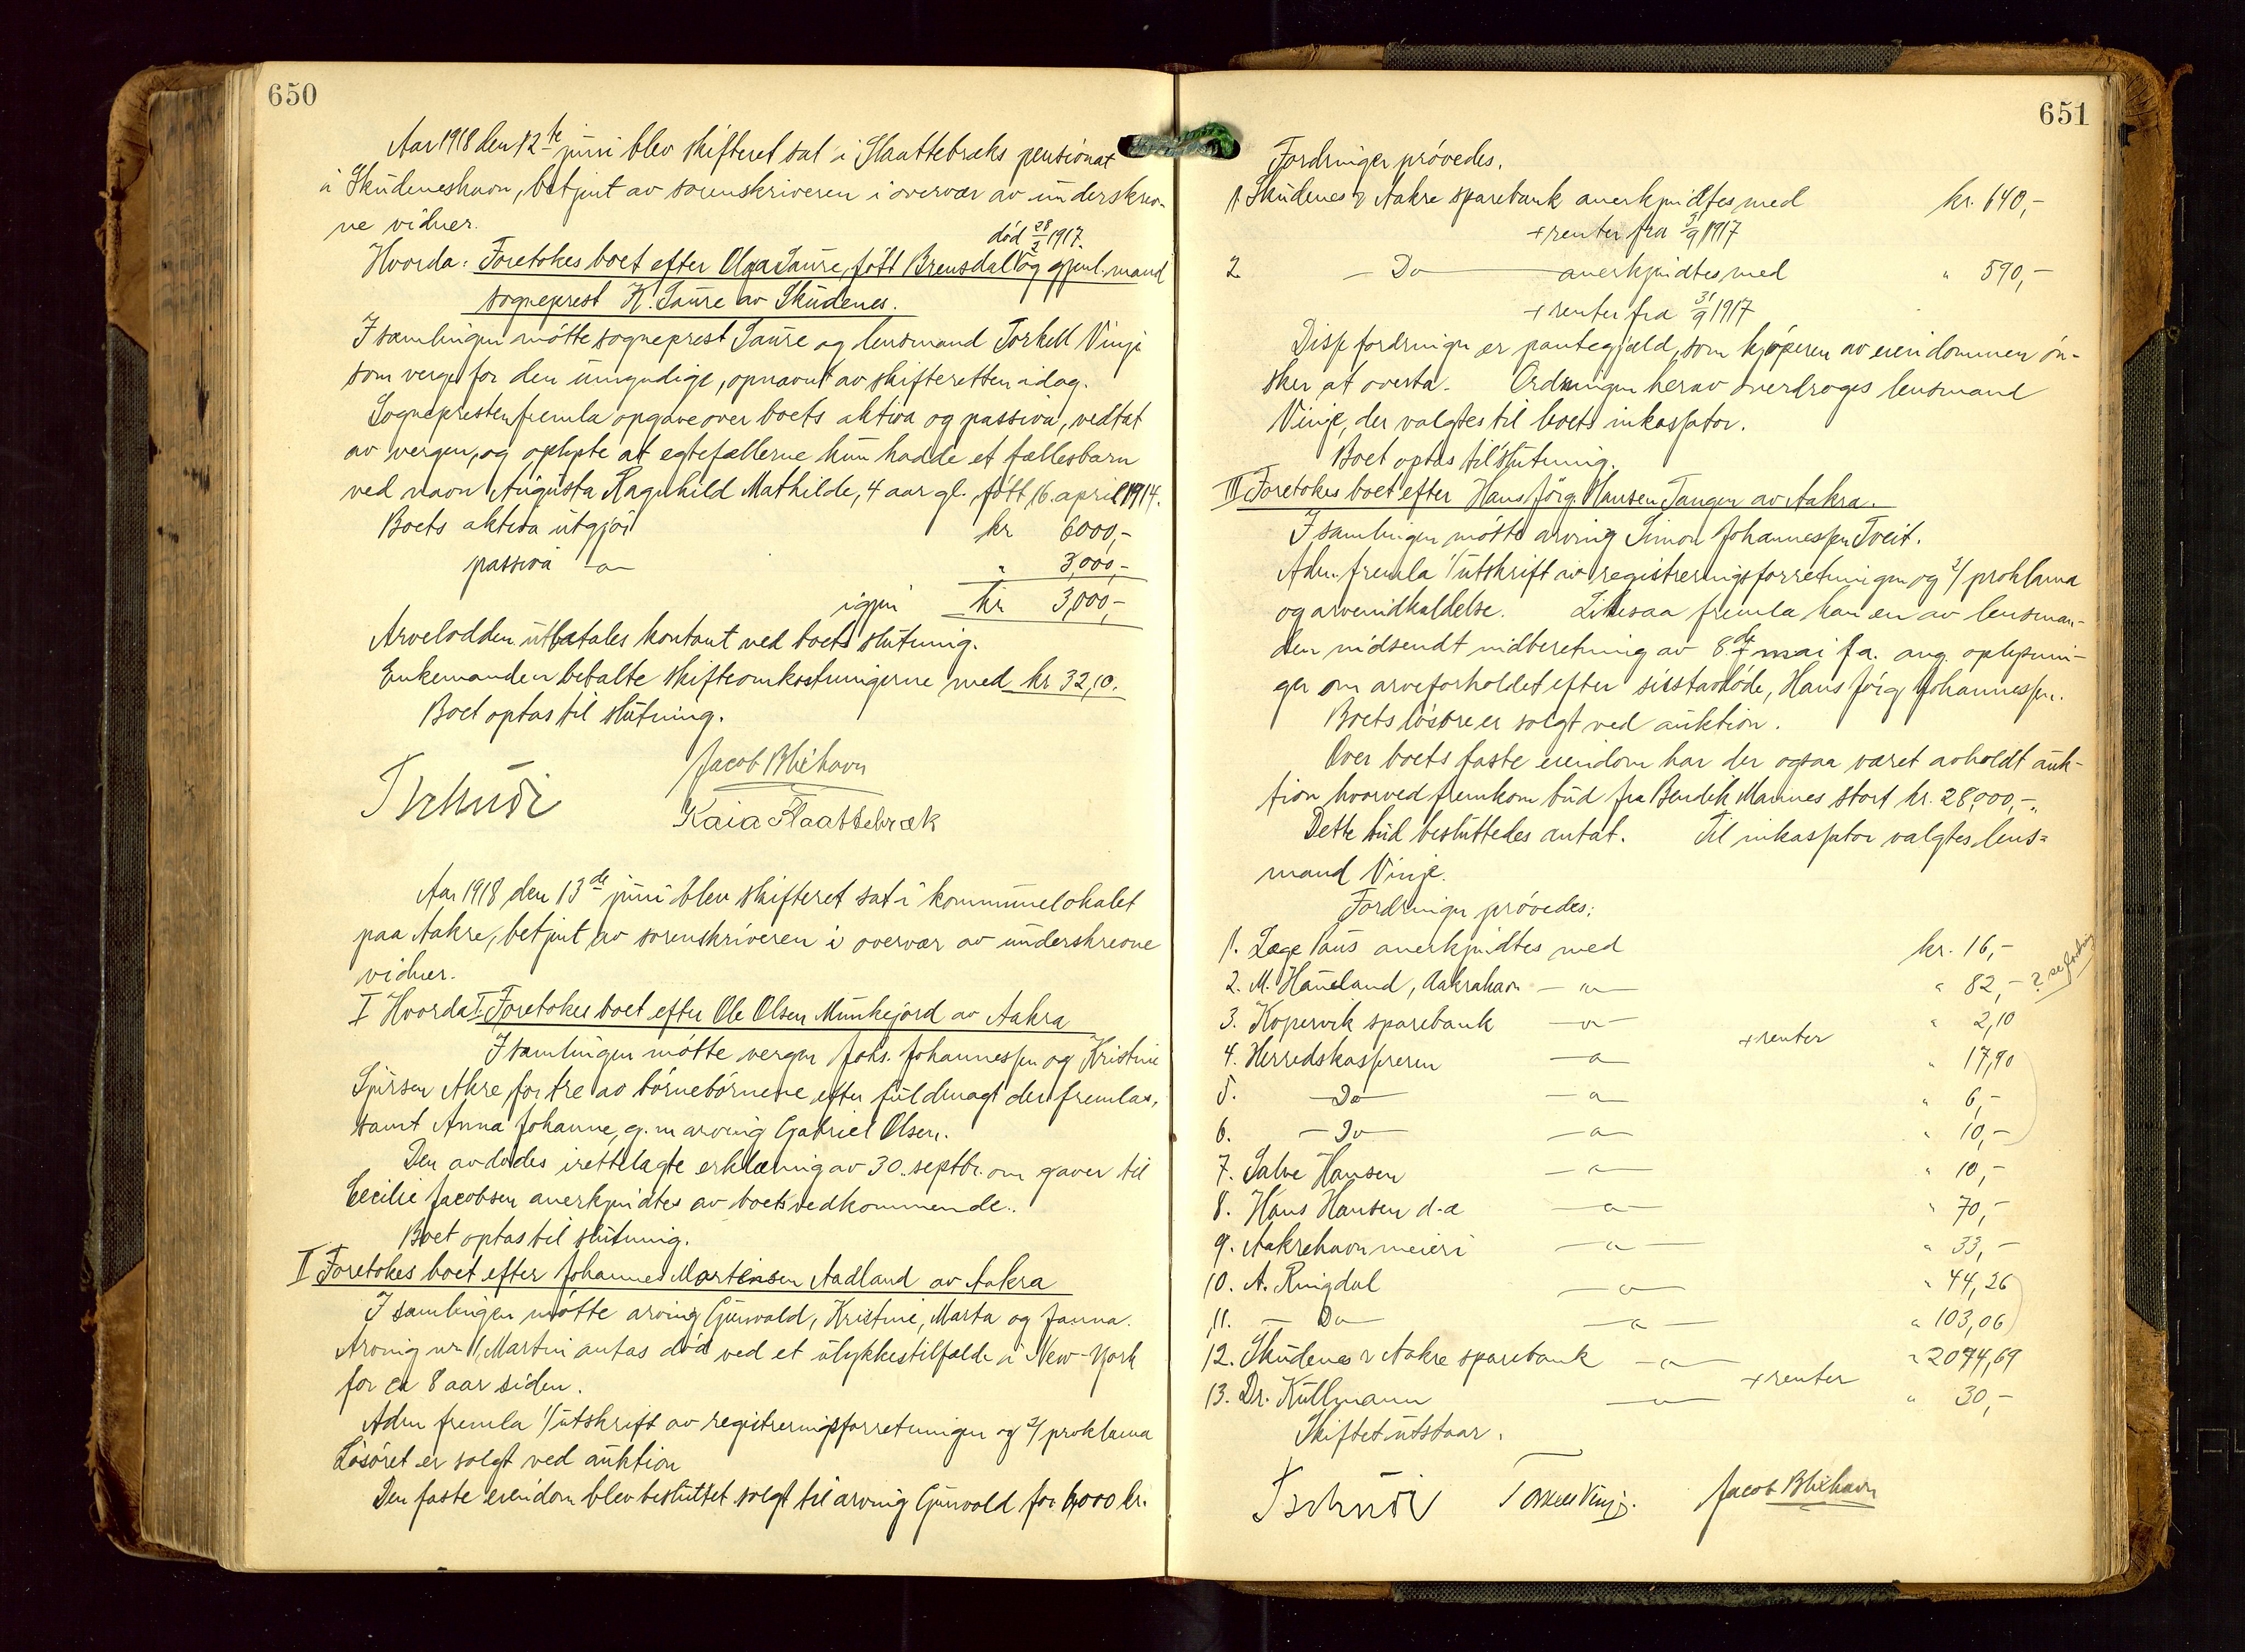 650
Aar 1918 den 12te juni blev skifteret sat i Slaattebræks pensionat
i Skudeneshavn, betjent av sorenskriveren i overvær av underskrev-
ne vidner.
død 28/2 1917.
Hvorda: Foretokes boet efter Olga Saure, født Brensdal og gjenl. mand
sogneprest K. Saure av Skudenes.
I samlingen møtte sogneprest Saure og lensmand Torkell Vinje
som verge for den umyndige, opnævnt av skifteretten idag.
Sognepresten fremla opgave over boets aktiva og passiva, vedtat
av vergen, og oplyste at egtefællerne kun hadde et fællesbarn
ved navn Augusta Ragnhild Mathilde, 4 aar gl. født 16. april 1914.
Boets aktiva utgjør kr 6000,-
passiva -"- " 3,000,-
igjen kr 3,000,-
Arvelodden utbetales kontant ved boets slutning.
Enkemanden betalte skifteomkostningerne med kr 32,10.
Boet optas til slutning.
Jacob Blikhavn
Tschudi
Kaia Slaattebræk
Aar 1918 den 13de juni blev skifteret sat i kommunelokalet
paa Aakre, betjent av sorenskriveren i overvær av underskrevne
vidner.
I Hvorda I. Foretokes boet efter Ole Olsen Munkejord av Aakra
I samlingen møtte vergen Johs. Johannessen og Kristine
Sjursen Akre for tre av børnebørnene efter fuldmagt der fremlas,
samt Anna Johanne, g. m arving Gabriel Olsen.
Den avdødes irettelagte erklæring av 30. septbr. om gaver til
Cecilie Jacobsen anerkjendtes av boets vedkommende.
Boet optas til slutning.
II Foretokes boet efter Johannes Mortensen Aadland av Aakra
I samlingen møtte arving Gunvald, Kristine, Marta og Janna.
Arving nr 1, Martin antas død ved et ulykkestilfælde i New-York
for ca 8 aar siden.
Adm fremla 1/ utskrift av registreringsforretningen og 2/ proklama
Løsøret er solgt ved auktion
Den faste eiendom blev besluttet solgt til arving Gunvald for 6,000 kr.
651
Fordringer prøvedes.
1. Skudenes & Aakre sparebank anerkjendtes med kr. 640,-
+ renter fra 3/9 1917
2. - Do - anerkjendtes med " 590,-
+ renter fra 31/9 1917
Disse fordringer er pantegjæld, som kjøperen av eiendommen øn-
sker at overta. Ordningen herav overdroges lensmand
Vinje, der valgtes til boets inkassator.
Boet optas til slutning.
III Foretokes boet efter Hans Jørg. Hansen Tangen av Aakra.
I samlingen møtte arving Simon Johannessen Tveit.
Adm. fremla 1/ utskrift av registreringsforretningen og 2/ proklama
og arveindkaldelse. Likesaa fremla han en av lensman-
den indsendt indberetning av 8de mai f.a. ang. oplysnin-
ger om arveforholdet efter sistavdøde, Hans Jørg. Johannessen.
Boets løsøre er solgt ved auktion.
Over boets faste eiendom har der ogsaa været avholdt auk-
tion hvorved fremkom bud fra Bendik Mannes stort kr. 28,000,-.
Dette bud besluttedes antat. Til inkassator valgtes lens-
mand Vinje.
Fordringer prøvedes:
1. Læge Paus anerkjendtes med kr. 16,-
2. M. Haneland, Aakrahavn -"- " 82,- ? se fordring
3. Kopervik sparebank -"- + renter " 2,10
4. Herredskassereren -"- " 17,90
5. - Do - -"- " 6,-
6. - Do - -"- " 10,-
7. Salve Hansen -"- " 10,-
8. Hans Hansen d.æ -"- " 70,-
9. Aakrehavn meieri -"- " 33,-
10. A. Ringdal -"- " 44,26
11. - Do - -"- " 103,06
12. Skudenes & Aakre sparebank -"- + renter " 2094,69
13. Dr. Kullmann -"- " 30,-
Skiftet utstaar.
Tschudi Torkell Vinje. Jacob Blikhavn